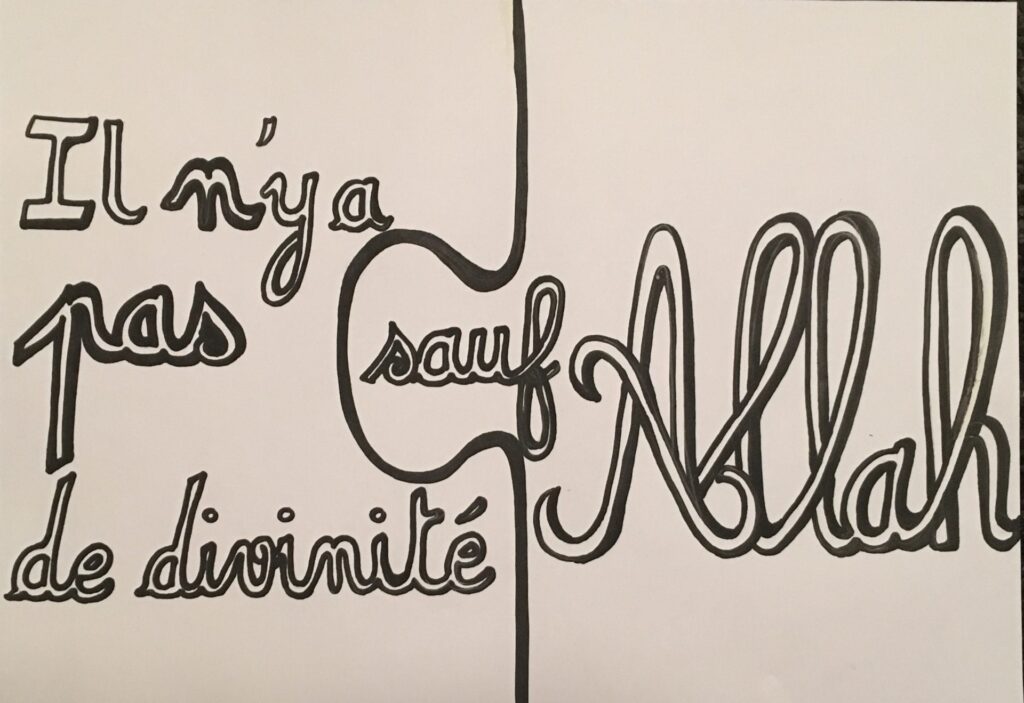 Il n'y a
pas
sauf
Allah
de divinité